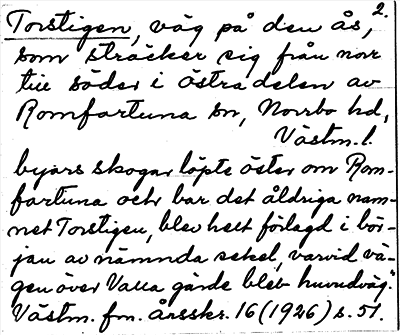 2.
Torstigen, väg på den ås,
som sträcker sig från norr
till söder i östra delen av
Romfartuna sn, Norrbo hd,
Västm. l.
byars skogar löpte öster om Rom-
fartuna och bar det åldriga nam-
net Torstigen, blev helt förlagd i bör-
jan av nämnda sekel, varvid vä-
gen över Valla gärde blev huvudväg."
Västm. fm. årsskr. 16 (1926) s. 51.